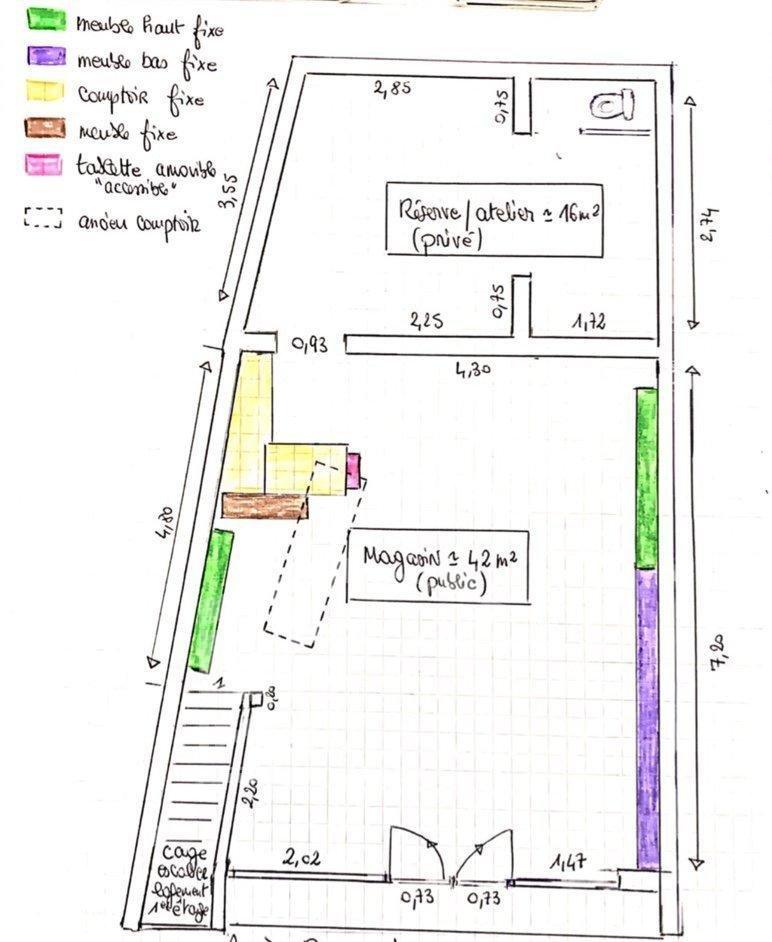 meuble haut fixe
meuble bas fixe
comptoir fixe
meuble fixe
tablette amovible
"accessible"
ancien comptoir
2,85
0,75
3,55
Réserve/atelier ≃ 16m²
(privé)
2,74
0,75
2,25
1,72
0,93
4,30
4,80
Magasin ≃ 42m²
(public)
7,20
1
0,20
2,20
cage
escalier
logement
1er étage
2,02
1,47
0,73
0,73